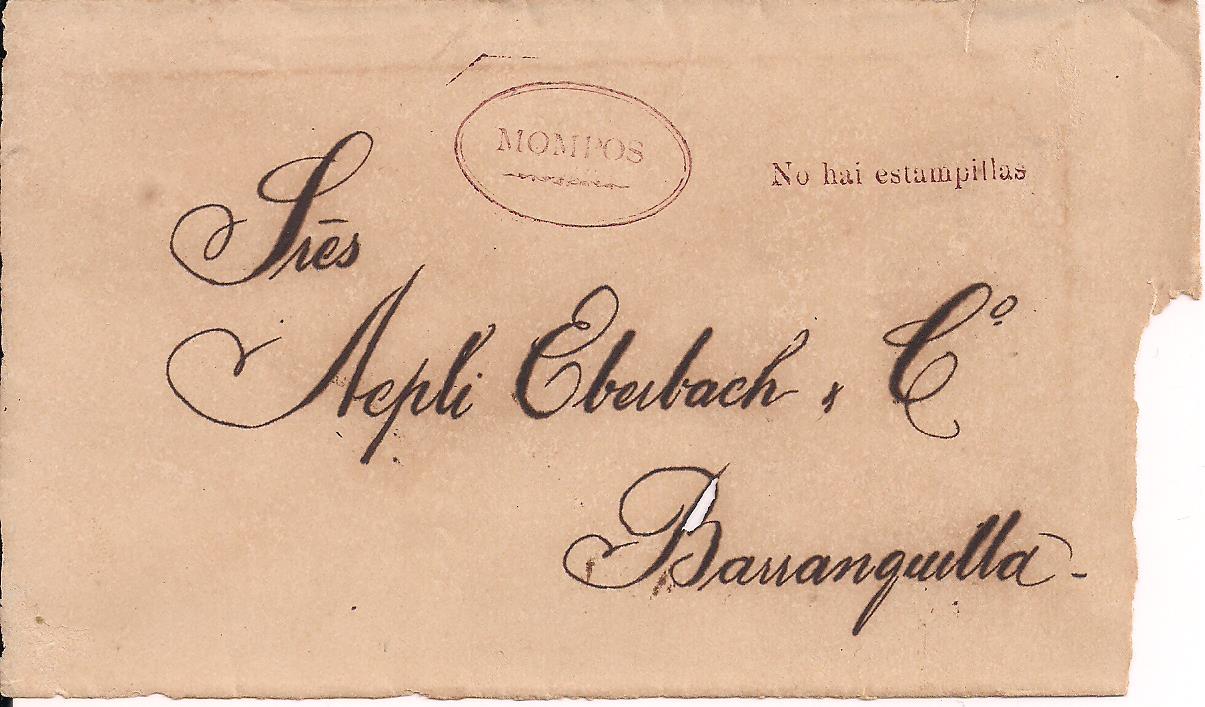 MOMPOS
No hai estampillas
Srēs
Aepli Eberbach & Cº
Barranquilla -